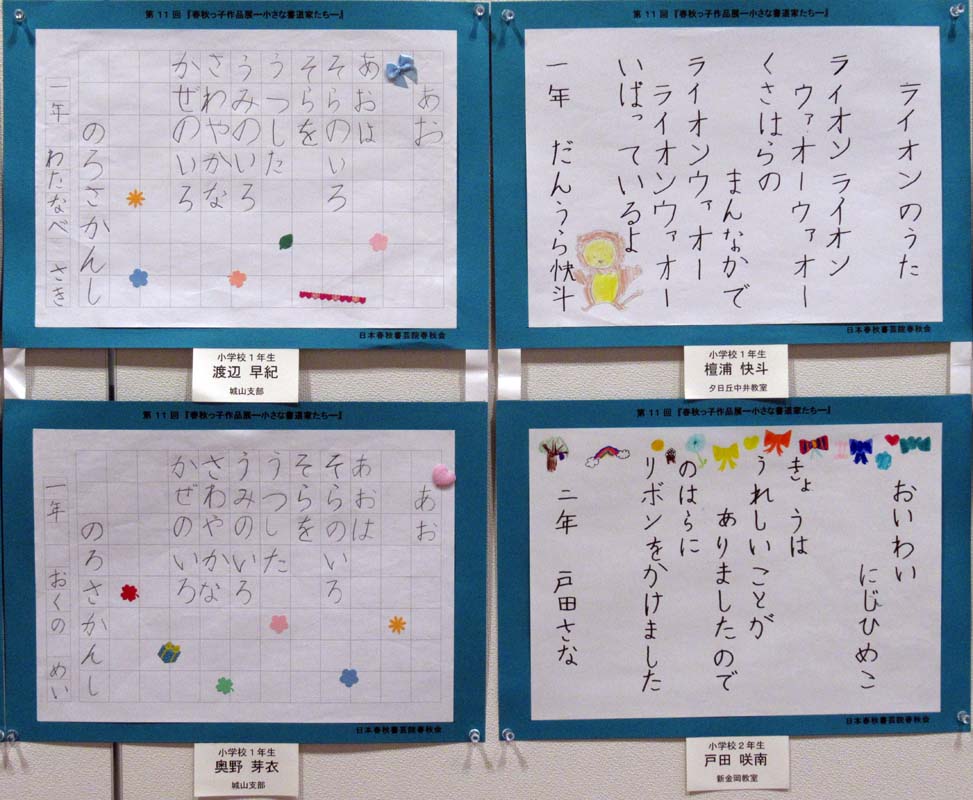 第11回『春秋っ子作品展ー小さな書道家たちー』
あお
あおは
そらのいろ
そらを
うつした
うみのいろ
さわやかな
かぜのいろ
のろさかんし
一年 わたなべ さき
日本春秋書芸院春秋会
小学校1年生
渡辺 早紀
城山支部
第11回『春秋っ子作品展ー小さな書道家たちー』
ライオンのうた
ライオン ライオン
ウァオーウァオー
くさはらの
まんなかで
ライオンウァオー
ライオンウァオー
いばっているよ
一年 だんうら快斗
日本春秋書芸院春秋会
小学校1年生
檀浦 快斗
夕日丘中井教室
第11回『春秋っ子作品展ー小さな書道家たちー』
あお
あおは
そらのいろ
そらを
うつした
うみのいろ
さわやかな
かぜのいろ
のろさかんし
一年 おくの めい
日本春秋書芸院春秋会
小学校1年生
奥野 芽衣
城山支部
第11回『春秋っ子作品展ー小さな書道家たちー』
おいわい
にじひめこ
きょうは
うれしいことが
ありましたので
のはらに
リボンをかけました
二年 戸田さな
日本春秋書芸院春秋会
小学校2年生
戸田 咲南
新金岡教室